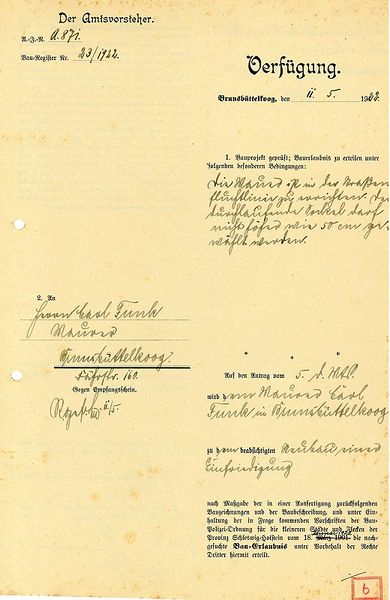 Der Amtsvorsteher.
A.-J.-N. A.871.
Bau-Register Nr. 23/1922.
Verfügung.
Brunsbüttelkoog, den 11. 5. 1922.
1. Bauprojekt geprüft; Bauerlaubnis zu erteilen unter
folgenden besonderen Bedingungen:
Die Mauer ist in der Straßen
fluchtlinie zu errichten. Der
durchlaufende Sockel darf
nicht höher wie 50 cm ge
wählt werden.
2. An
Herrn Carl Funk
Maurer
Brunsbüttelkoog.
Fährstr. 160.
Gegen Empfangsschein.
11/5.
* * *
Auf den Antrag vom 5. d. Mts.
wird dem Maurer Carl
Funk in Brunsbüttelkoog
zu dem beabsichtigten Neubau einer
Einfriedigung
nach Maßgabe der in einer Ausfertigung zurückfolgenden
Bauzeichnungen und der Baubeschreibung, und unter Ein-
haltung der in Frage kommenden Vorschriften der Bau-
Polizei-Ordnung für die kleineren Städte und Flecken der
Provinz Schleswig-Holstein vom 18. März 1901 die nach-
gesuchte Bau-Erlaubnis unter Vorbehalt der Rechte
Dritter hiermit erteilt.
6